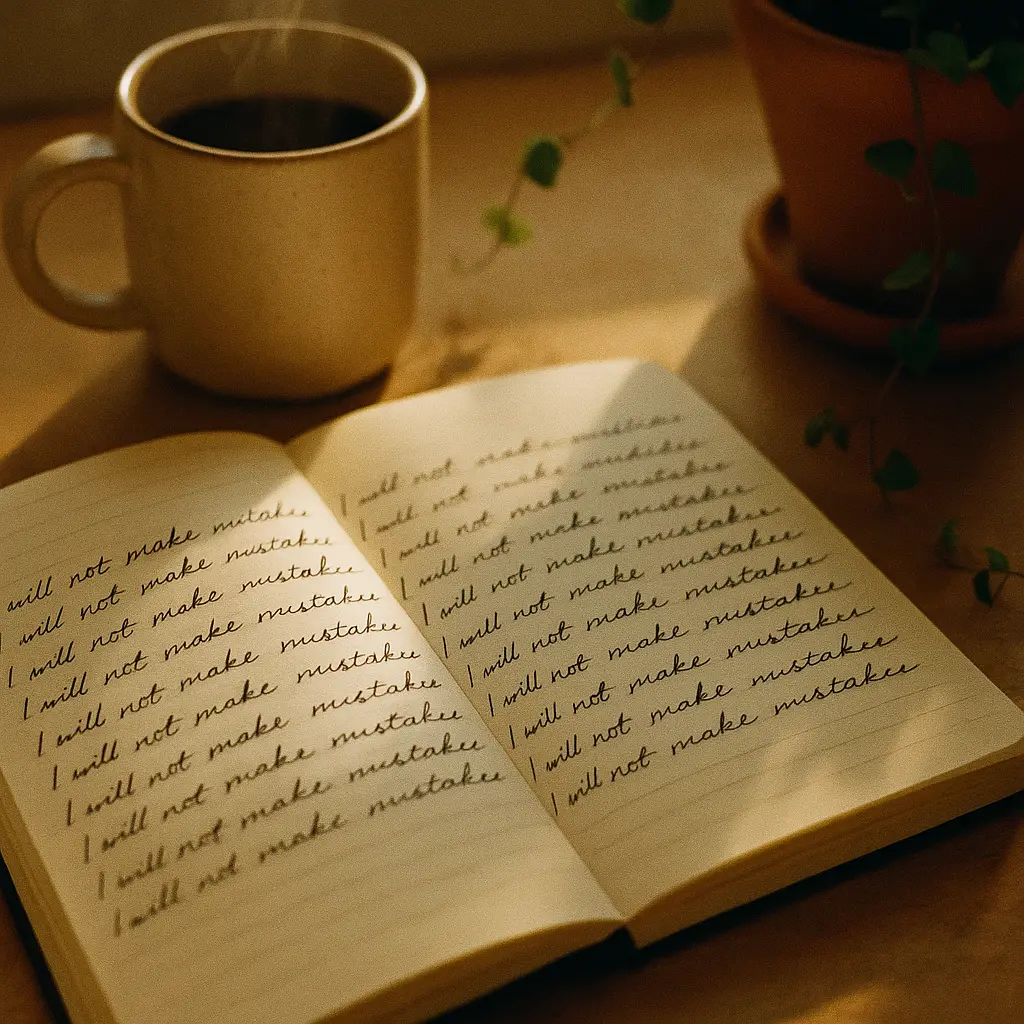 will not make mitake
I will not make mistakee
I will not make mistakee
I will not make mistakee
I will not make mistakee
I will not make mistakee
I will not make mistakee
I will not make mistakee
I will not make mistakee
I will not make mistakee
I will not make
I will not make
I will not make mistakee
I will not make mistakee
I will not make mistakee
I will not make mistakee
I will not make mistakee
I will not make mistakee
I will not make mistaker
I will not make mistakee
I will not make mistakee